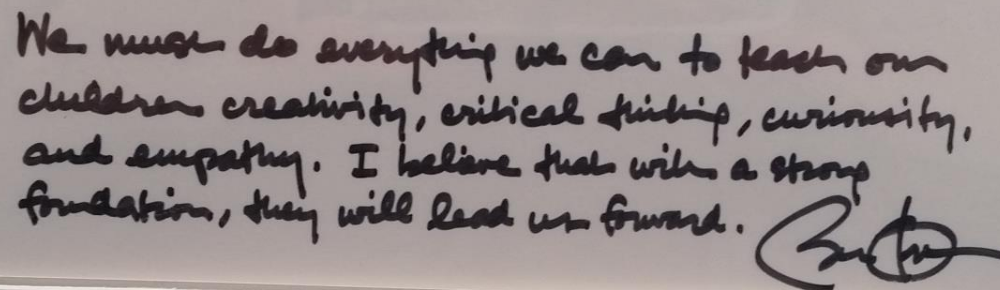 We must do everything we can to teach our
children creativity, critical thinking, curiousity,
and empathy. I believe that with a strong
foundation, they will lead us forward.